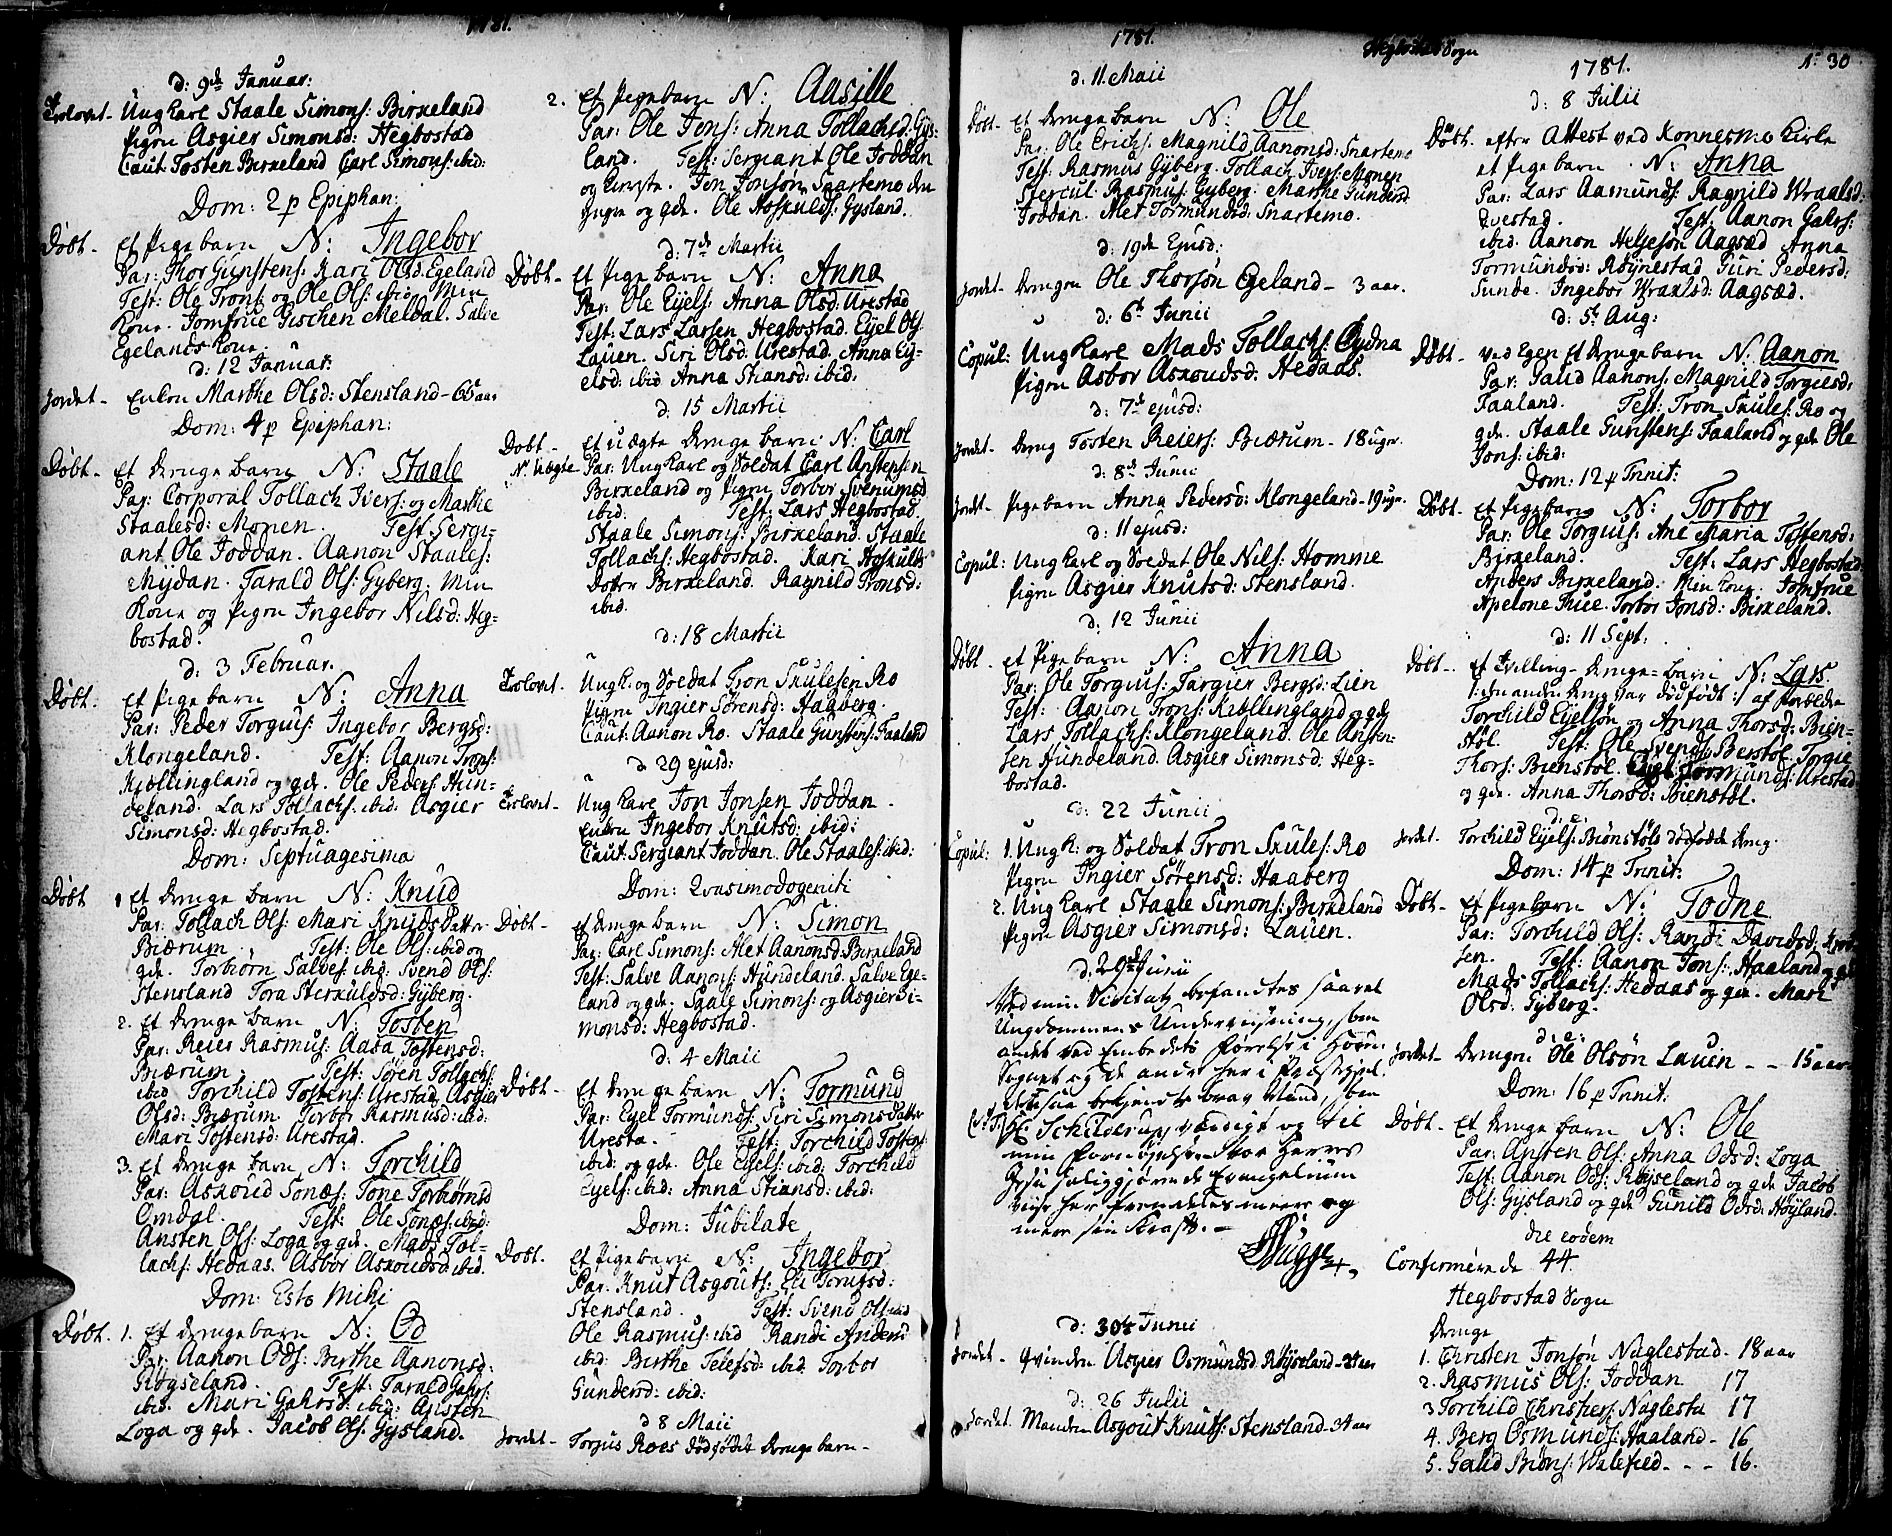 1781.
d: 9de Januar:
Trolovet. Ung Karl Staale Simons: Birkeland
Pigen Asgier Simonsd: Hegbostad
Caut: Tosten Birkeland Carl Simons: ibid:
Dom: 2 p Epiphan:
Døbt. Et Pige barn N: Ingebor
Par: Thor Gunstens: Kari Olsd. Egeland
Test: Ole Trons: og Ole Ols: ibid. Min
Kone. Jomfrue Gischen Meldal. Salve
Egelands Kone.
d: 12 Januar:
Jordet. Enken Marthe Olsd: Stensland - 65 aar
Dom: 4 p Epiphan:
Døbt. Et Drenge barn N: Staale
Par: Corporal Tollach Ivers: og Marthe
Staalesd: Monen. Test: Sergi-
ant Ole Joddan. Aanon Staales:
Mydan. Tarald Ols: Gyberg. Min
Kone og Pigen Ingebor Nilsd: Heg-
bostad.
d: 3 Februar.
Døbt: Et Pige barn N: Anna
Par: Peder Torguis: Ingebor Bergsd:
Klongeland. Test: Aanon Trons:
Kiællingland og gde. Ole Peders: Hun-
deland. Lars Tollachs: ibid: Asgier
Simonsd: Hegbostad.
Dom: Septuagesima
Døbt 1 Et Drenge barn N: Knud
Par: Tollach Ols: Mari Knuds Datter
Biærum. Test: Ole Ols: ibid og
gde. Torbiørn Salves: ibid: Svend Ols:
Stensland Tora Sterkulsd: Gyberg.
2. Et Drenge barn N: Tosten
Par: Reier Rasmus: Aasa Tostensd:
Biærum. Test: Søren Tollachs:
ibid Torchild Tostens: Urestad, Asgier
Olsd: Biærum. Torbor Rasmusd: ibid:
Mari Tostensd: Urestad.
3. Et Drenge barn N: Torchild
Par: Askoud Jonæs: Tone Torbiørnsd
Omdal. Test: Ole Jonæs: ibid:
Ansten Ols: Loga og gde. Mads Tol-
lachs: Hedaas. Asbor Askoudsd: ibid.
Dom: Esto Mihi
Døbt. 1. Et Drenge barn N: Od
Par: Aanon Ods: Birthe Aanonsd:
Røyseland. Test: Tarald Gahrs:
ibid. Mari Gahrsd: ibid: Ansten
Loga og gde. Jacob Ols: Gysland.
2. Et Pige barn N: Aasille
Par: Ole Jons: Anna Tollachsd: Gys-
land. Test: Sergiant Ole Joddan
og Kone. Jon Jonsøn Snartemo den
Yngre og gde. Ole Hoskulds: Gysland.
d: 7de Martii
Døbt. Et Pige barn N: Anna
Par: Ole Eyels: Anna Olsd: Urestad
Test: Lars Larsen Hegbostad. Eyel Ols:
Lauen. Siri Olsd: Urestad. Anna Ey-
elsd: ibid Anna Stiansd: ibid:
d: 15 Martii
Døbt. Et uægte Drenge barn N: Carl
Nº Uægte Par: Ung Karl og Soldat Carl Anstensen
Birkeland og Pigen Torbor Svenumsd
ibid. Test: Lars Hegbostad.
Staale Simons: Birkeland. Staale
Tollachs: Hegbostad. Kari Hoskulds
Datter Birkeland. Ragnild Tronsd:
ibid.
d: 18 Martii
Trolovet. Ung K: og Soldat Tron Skulesen Ro
Pigen Ingier Sørensd: Haaberg.
Caut: Aanon Ro. Staale Gunstens: Faaland
d 29 ejusd:
Trolovet. Ung Karl Jon Jonsen Joddan.
Enken Ingebor Knutsd: ibid:
Caut: Sergiant Joddan. Ole Staales: ibid:
Dom: Qvasimodogeniti
Døbt. Et Drenge barn N: Simon
Par: Carl Simons: Alet Aanonsd: Birkeland
Test: Salve Aanons: Hundeland. Salve Ege-
land og gde. Staale Simons: og Asgier Si-
monsd: Hegbostad.
d: 4 Maii
Døbt. Et Drenge barn N: Tormund
Par: Eyel Tormunds: Siri Simonsdatter
Uresta. Test: Torchild Tostens:
ibid: og gde. Ole Eyels: ibid: Torchild
Eyels: ibid: Anna Stiansd: ibid:
Dom: Jubilate
Døbt. Et Pige barn N: Ingebor
Par: Knut Asgouts: Eli Torufsd:
Stensland. Test: Svend Ols: ibid
Ole Rasmus: ibid Randi Andersd
ibid: Birthe Telefsd: ibid. Torbor
Gundersd: ibid:
d 8 Maii
Jordet. Torjus Roes dødfødte Drenge barn.
1781.
d: 11 Maii
Døbt. Et Drenge barn N: Ole
Par: Ole Erichs: Magnild Aanonsd: Snartemo
Test: Rasmus Gyberg. Tollach Ivers: Monen
Stercul: Rasmus: Gyberg. Marthe Gundersd
Joddan. Alet Tormundsd: Snartemo.
d: 19de Ejusd:
Jordet. Drengen Ole Thorsøn Egeland - 3 aar.
d: 6te Junii
Copul: Ung Karl Mads Tollachs: Gydna
Pigen Asbor Askoudsd: Hedaas.
d: 7de ejusd:
Jordet. Dreng Tosten Reiers: Biærum - 18 uger.
d: 8de Junii
Jordet. Pige barn Anna Pedersd: Klongeland - 19 uger.
d: 11 ejusd:
Copul: Ung Karl og Soldat Ole Nils: Homme
Pigen Asgier Knutsd: Stensland.
d: 12 Junii
Døbt. et Pige barn N: Anna
Par: Ole Torguis: Targier Bergsd: Lien
Test: Aanon Trons: Kiællingland og gde
Lars Tollachs: Klongeland. Ole Ansten-
sen Hundeland. Asgier Simonsd: Heg-
bostad.
d: 22 Junii
Copul: 1. Ung K: og Soldat Tron Skules: Ro
Pigen Ingier Sørensd: Haaberg
2. Ung Karl Staale Simons: Birkeland
Pigen Asgier Simonsd: Lauen.
d: 29de Junii
Ved min Visitatz befandtes saavel
Ungdommens Underviisning, som
andet ved Embedets Førelse i Hoved
Sognet og de andre her i Præstegiel.
Schilderup værdigt og til
min Fornøyelse. Vor Herres
Jesu saliggjørende Evangelium
viise her fremdeles meere og
meere sin Kraft. -
d: 30te Junii
Jordet. Qvinden Asgier Osmundsd: Røyseland
d: 26 Julii
Jordet. Manden Asgout Knuts: Stensland - 34 aar
Hegbostad Sogn
1781. Nº 30
d: 8 Julii
Døbt. efter Attest ved Konnesmo Kirke
et Pige barn N: Anna
Par: Lars Aasmunds: Ragnild Wraalsd:
Qvestad. Test: Aanon Gahrs:
ibid. Aanon Helgesøn Aagsæd Anna
Tormundsd: Røynestad. Guri Pedersd:
Sunde. Ingebor Wraalsd: Aagsæd.
d: 5te Aug:
Døbt. ved Egen Et Drenge barn N: Aanon
Par: Gaud Aanons: Magnild Torgiusd:
Faaland. Test: Tron Skules: Ro og
gde. Staale Gunstens: Faaland og gde Ole
Jons: ibid:
Dom: 12 p Trinit:
Døbt. et Pige barn N: Torbor
Par: Ole Torguis: Ane Maria Tostensd:
Birkeland. Test: Lars Hegbostad
Anders Birkeland. Min Kone. Jomfrue
Apelone Friie. Torbor Jonsd: Birkeland.
d: 11 Sept:
Døbt. et Tvilling-Drenge-barn N: Lars
/: den anden Dreng var dødfødt :/ af Forældre
Torchild Eyelsøn og Anna Thorsd: Bien-
støl. Test: Ole Svends: Berstøl Torgie
Thors: Bienstøl. Eyel Tormunds: Urestad
og gde. Anna Thorsd: Bienstøl.
d: e:
Jordet. Torchild Eyels: Biønstøls dødfødde Dreng.
Dom: 14 p Trinit:
Døbt. et Pige barn N: Todne
Par: Torchild Ols: Randi Davidsd:
sen. Test: Aanon Jons: Haaland og gde
Mads Tollachs: Hedaas og gde. Mari
Olsd: Gyberg.
d: e:
Jordet. Drengen Ole Olsøn Lauen - - 15 aar
Dom: 16 p Trinit:
Døbt. Et Drenge barn N: Ole
Par: Ansten Ols: Anna Odsd: Loga
Test: Aanon Ods: Røyseland og gde Jacob
Ols: Gysland og gde Gunild Odsd: Høyland.
die eodem
Confirmerede 44.
Hegbostad Sogn
Drenge
1. Christen Jonsøn Naglestad - 18 aar
2. Rasmus Ols: Joddan 17
3 Torchild Christens: Naglesta 17
4. Berg Osmunds: Haaland - 16
5. Gaud Biøns: Walefield - - - 16.